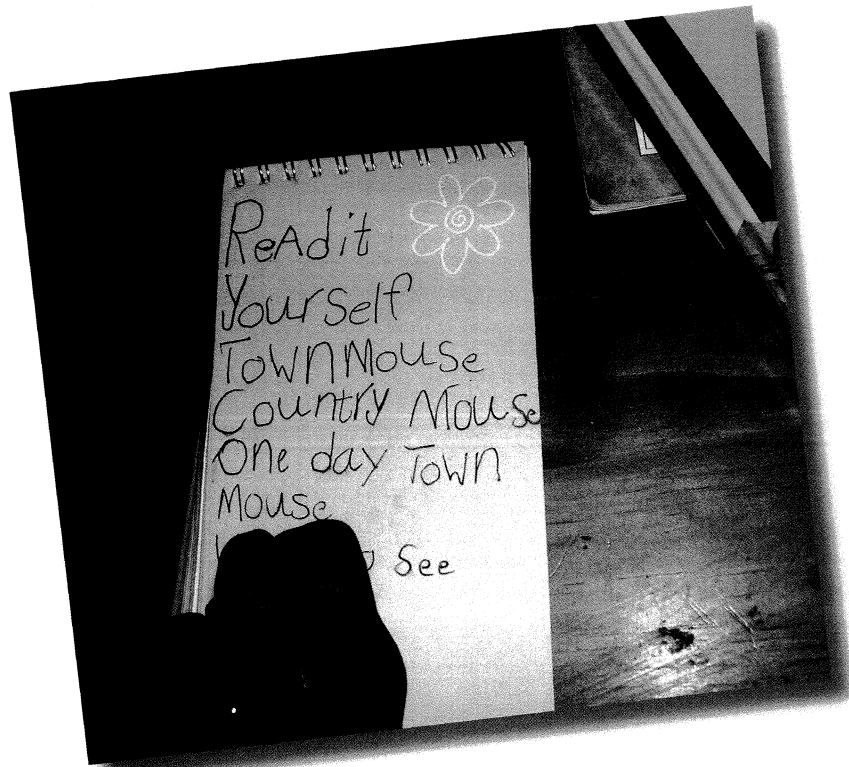 ReAd it
YourSelf
TownMouSe
Country MouSe
One day Town
MouSe
See